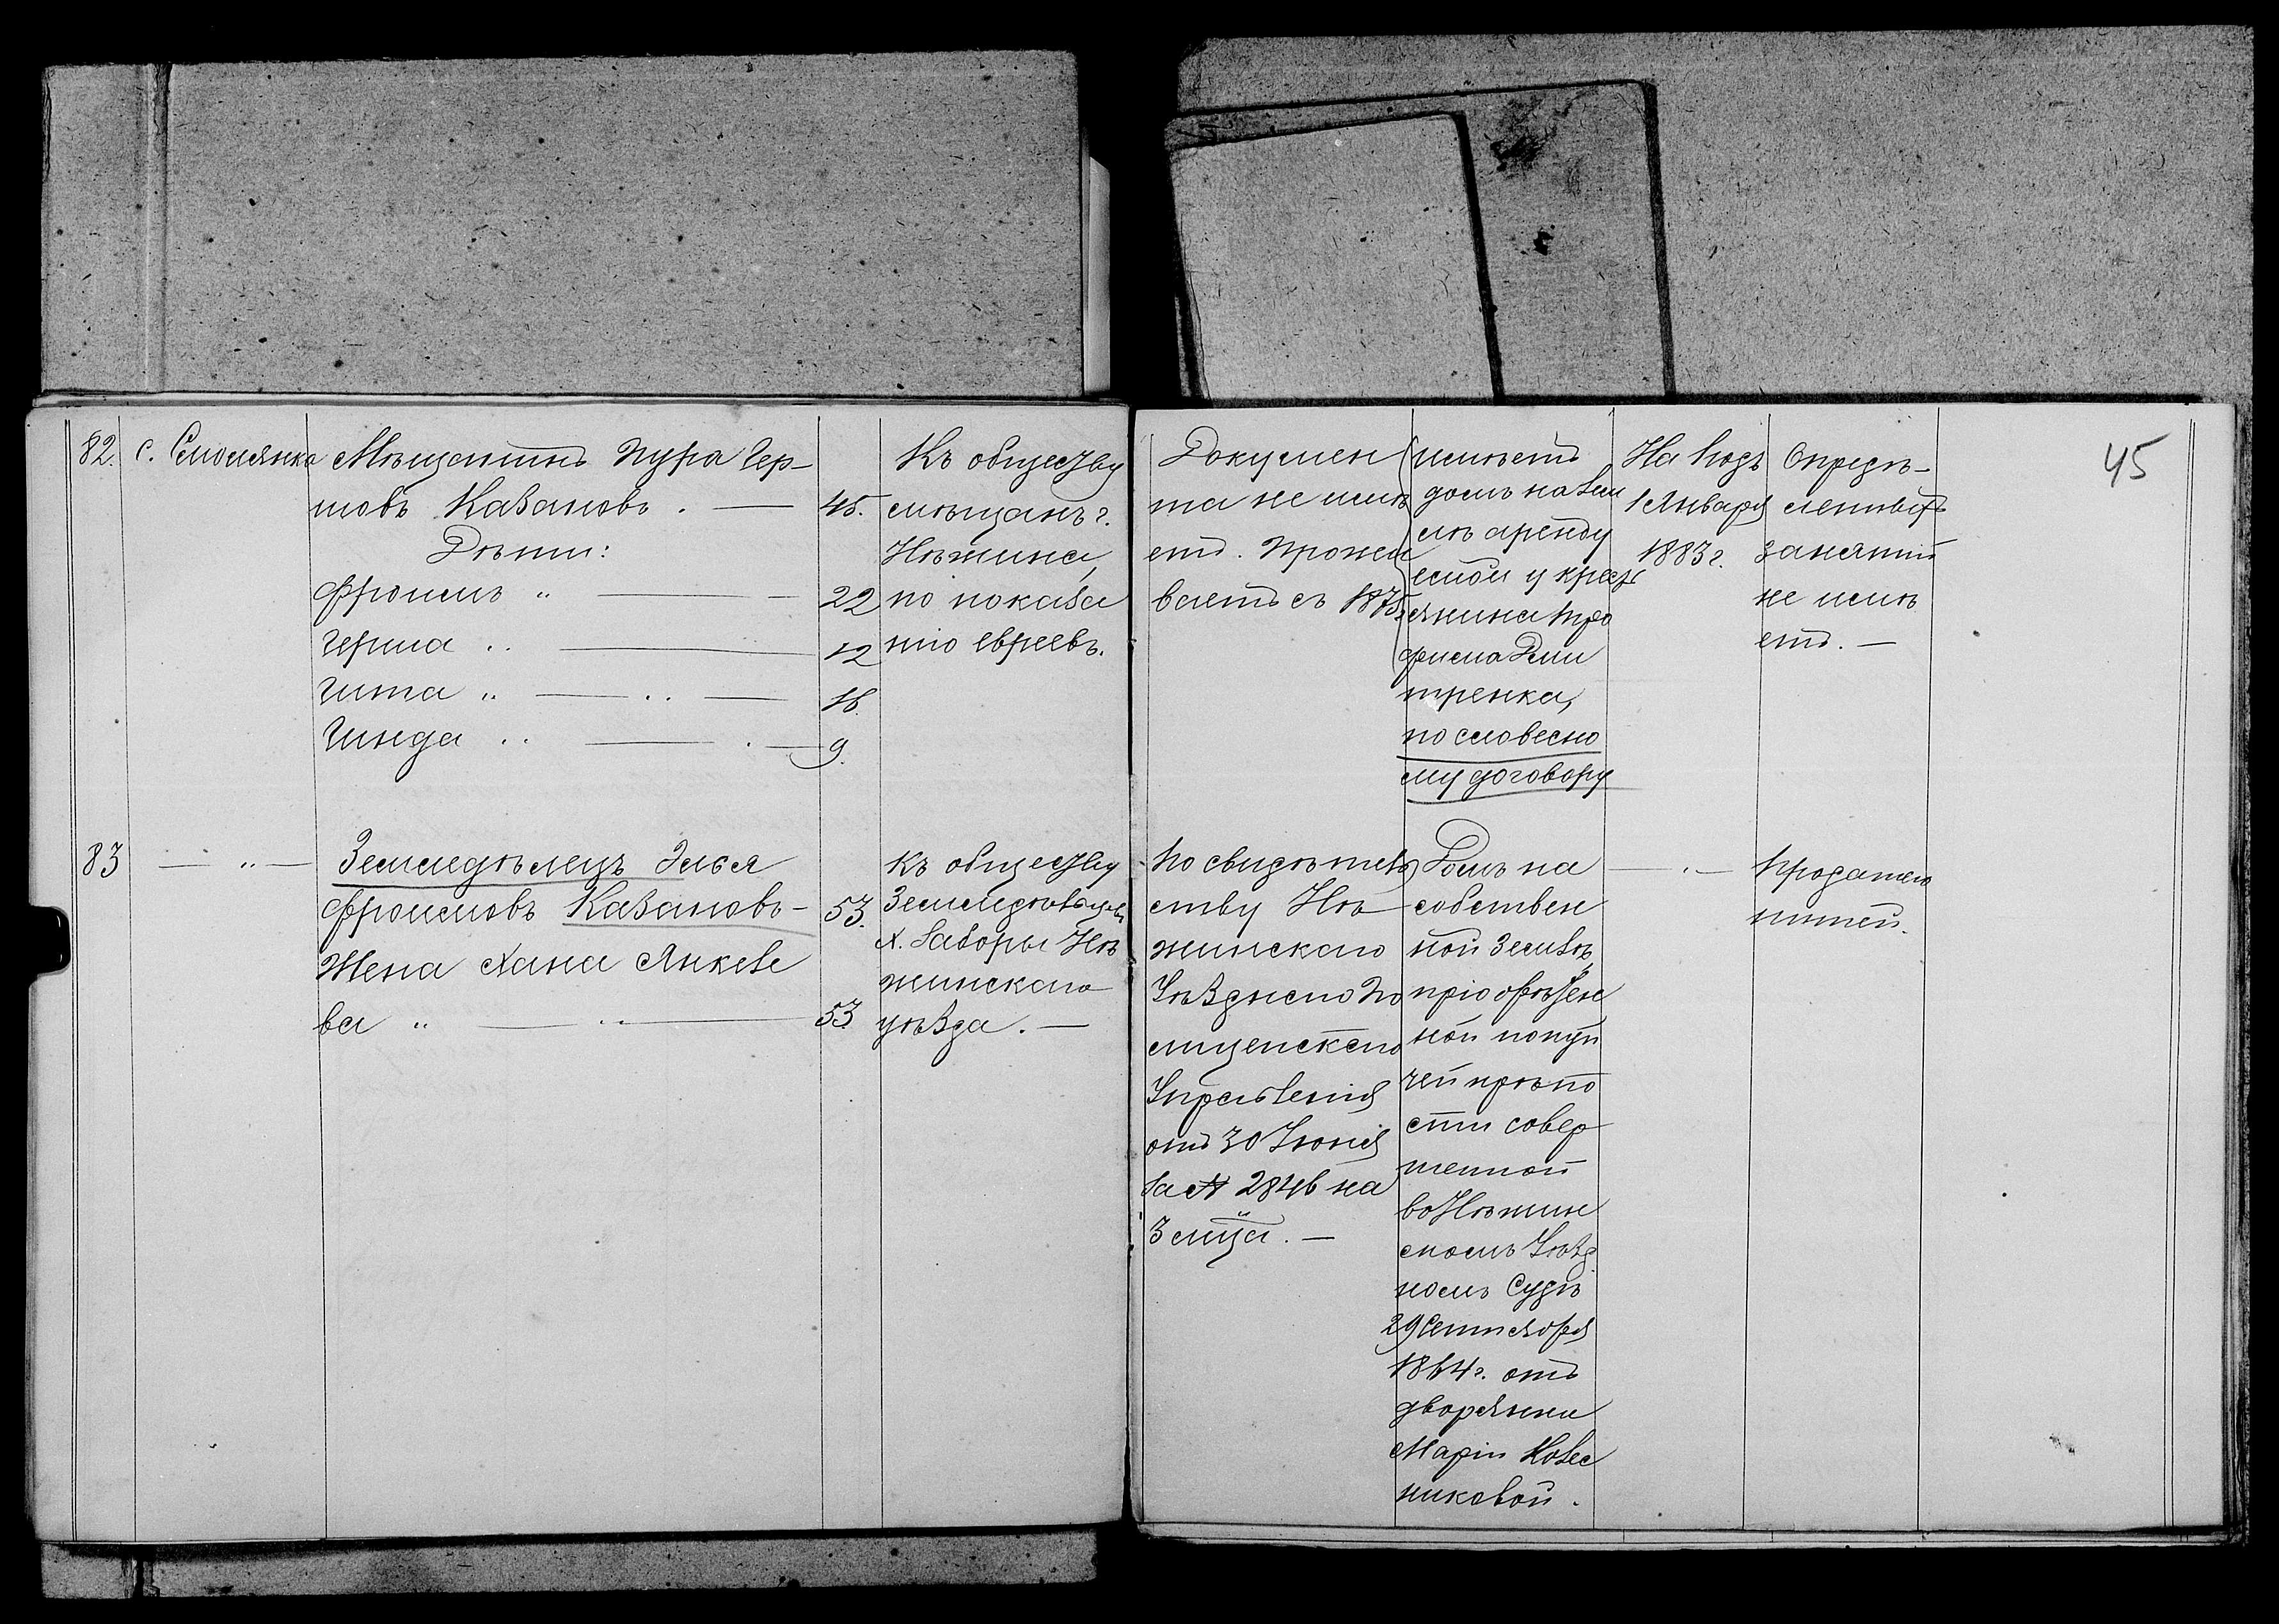 45
82. с. Смолянка
Мѣщанинъ Нура Гер-
шовъ Казановъ. — 45.
Дѣти:
Фроимъ " — 22
Герша " — 12
Гита " — 16.
Гинда " — 9.
Къ обществу
мѣщанъ г.
Нѣжина,
по показа
нію евреевъ.
Докумен
та не имѣ
етъ. Прожи
ваетъ съ 1875
имѣетъ
домъ на зем
лѣ арендуе
емой у крест
янина Тро
фима Дми
тренка,
по словесно
му договору
На годъ
1 Января
1883 г.
Опредѣ-
ленныхъ
занятій
не имѣ
етъ. —
83 — " —
Земледѣлецъ Элья
Фроимовъ Казановъ - 53.
Жена Хана Янкеле
ва " — " — 53
Къ обществу
Земледѣльцевъ
х. Заборы Нѣ
жинскаго
уѣзда. —
По свидѣтель
ству Нѣ
жинскаго
Уѣзднаго По
лицейскаго
Управленія
отъ 30 Іюнія
за № 2846 на
3 мца. —
Домъ на
собствен
ной землѣ,
пріобрѣтен
ной по куп
чей крѣпо
сти совер
шенной
во Нѣжин
скомъ Уѣзд
номъ Судѣ
29 Сентября
1864 г. отъ
дворянки
Маріи Колес
никовой.
— " —
Продажею
питей.